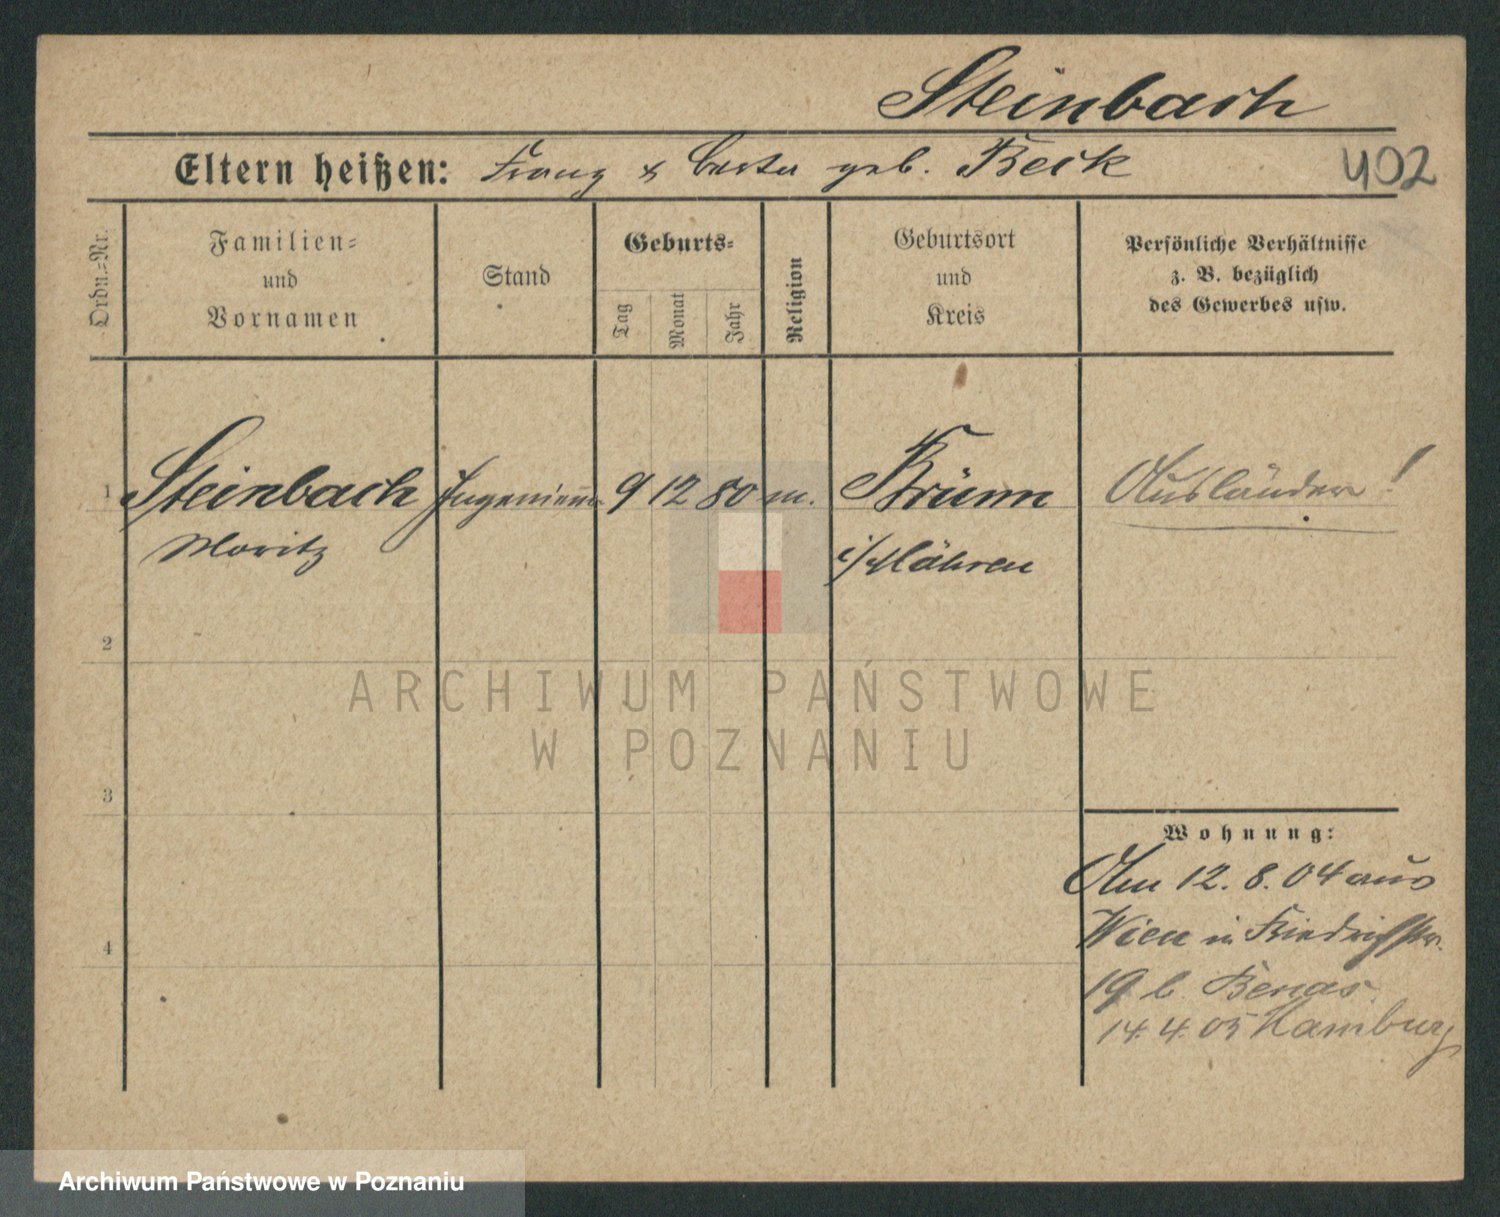 Steinbach
Eltern heißen: Franz & Berta geb. Beck
402
Ordn.=Nr.
Familien=
und
Vornamen
Stand
Geburts=
Tag
Monat
Jahr
Religion
Geburtsort
und
Kreis
Persönliche Verhältnisse
z. B. bezüglich
des Gewerbes usw.
1 Steinbach Ingenieur 9 12 80 m. Brünn Ausländer!
Moritz i/Mähren
2
ARCHIWUM PAŃSTWOWE
W POZNANIU
3
Wohnung:
Am 12. 8. 04 aus
Wien in Friedrichstr.
4
19 b. Benas
14. 4. 05 Hamburg
Archiwum Państwowe w Poznaniu